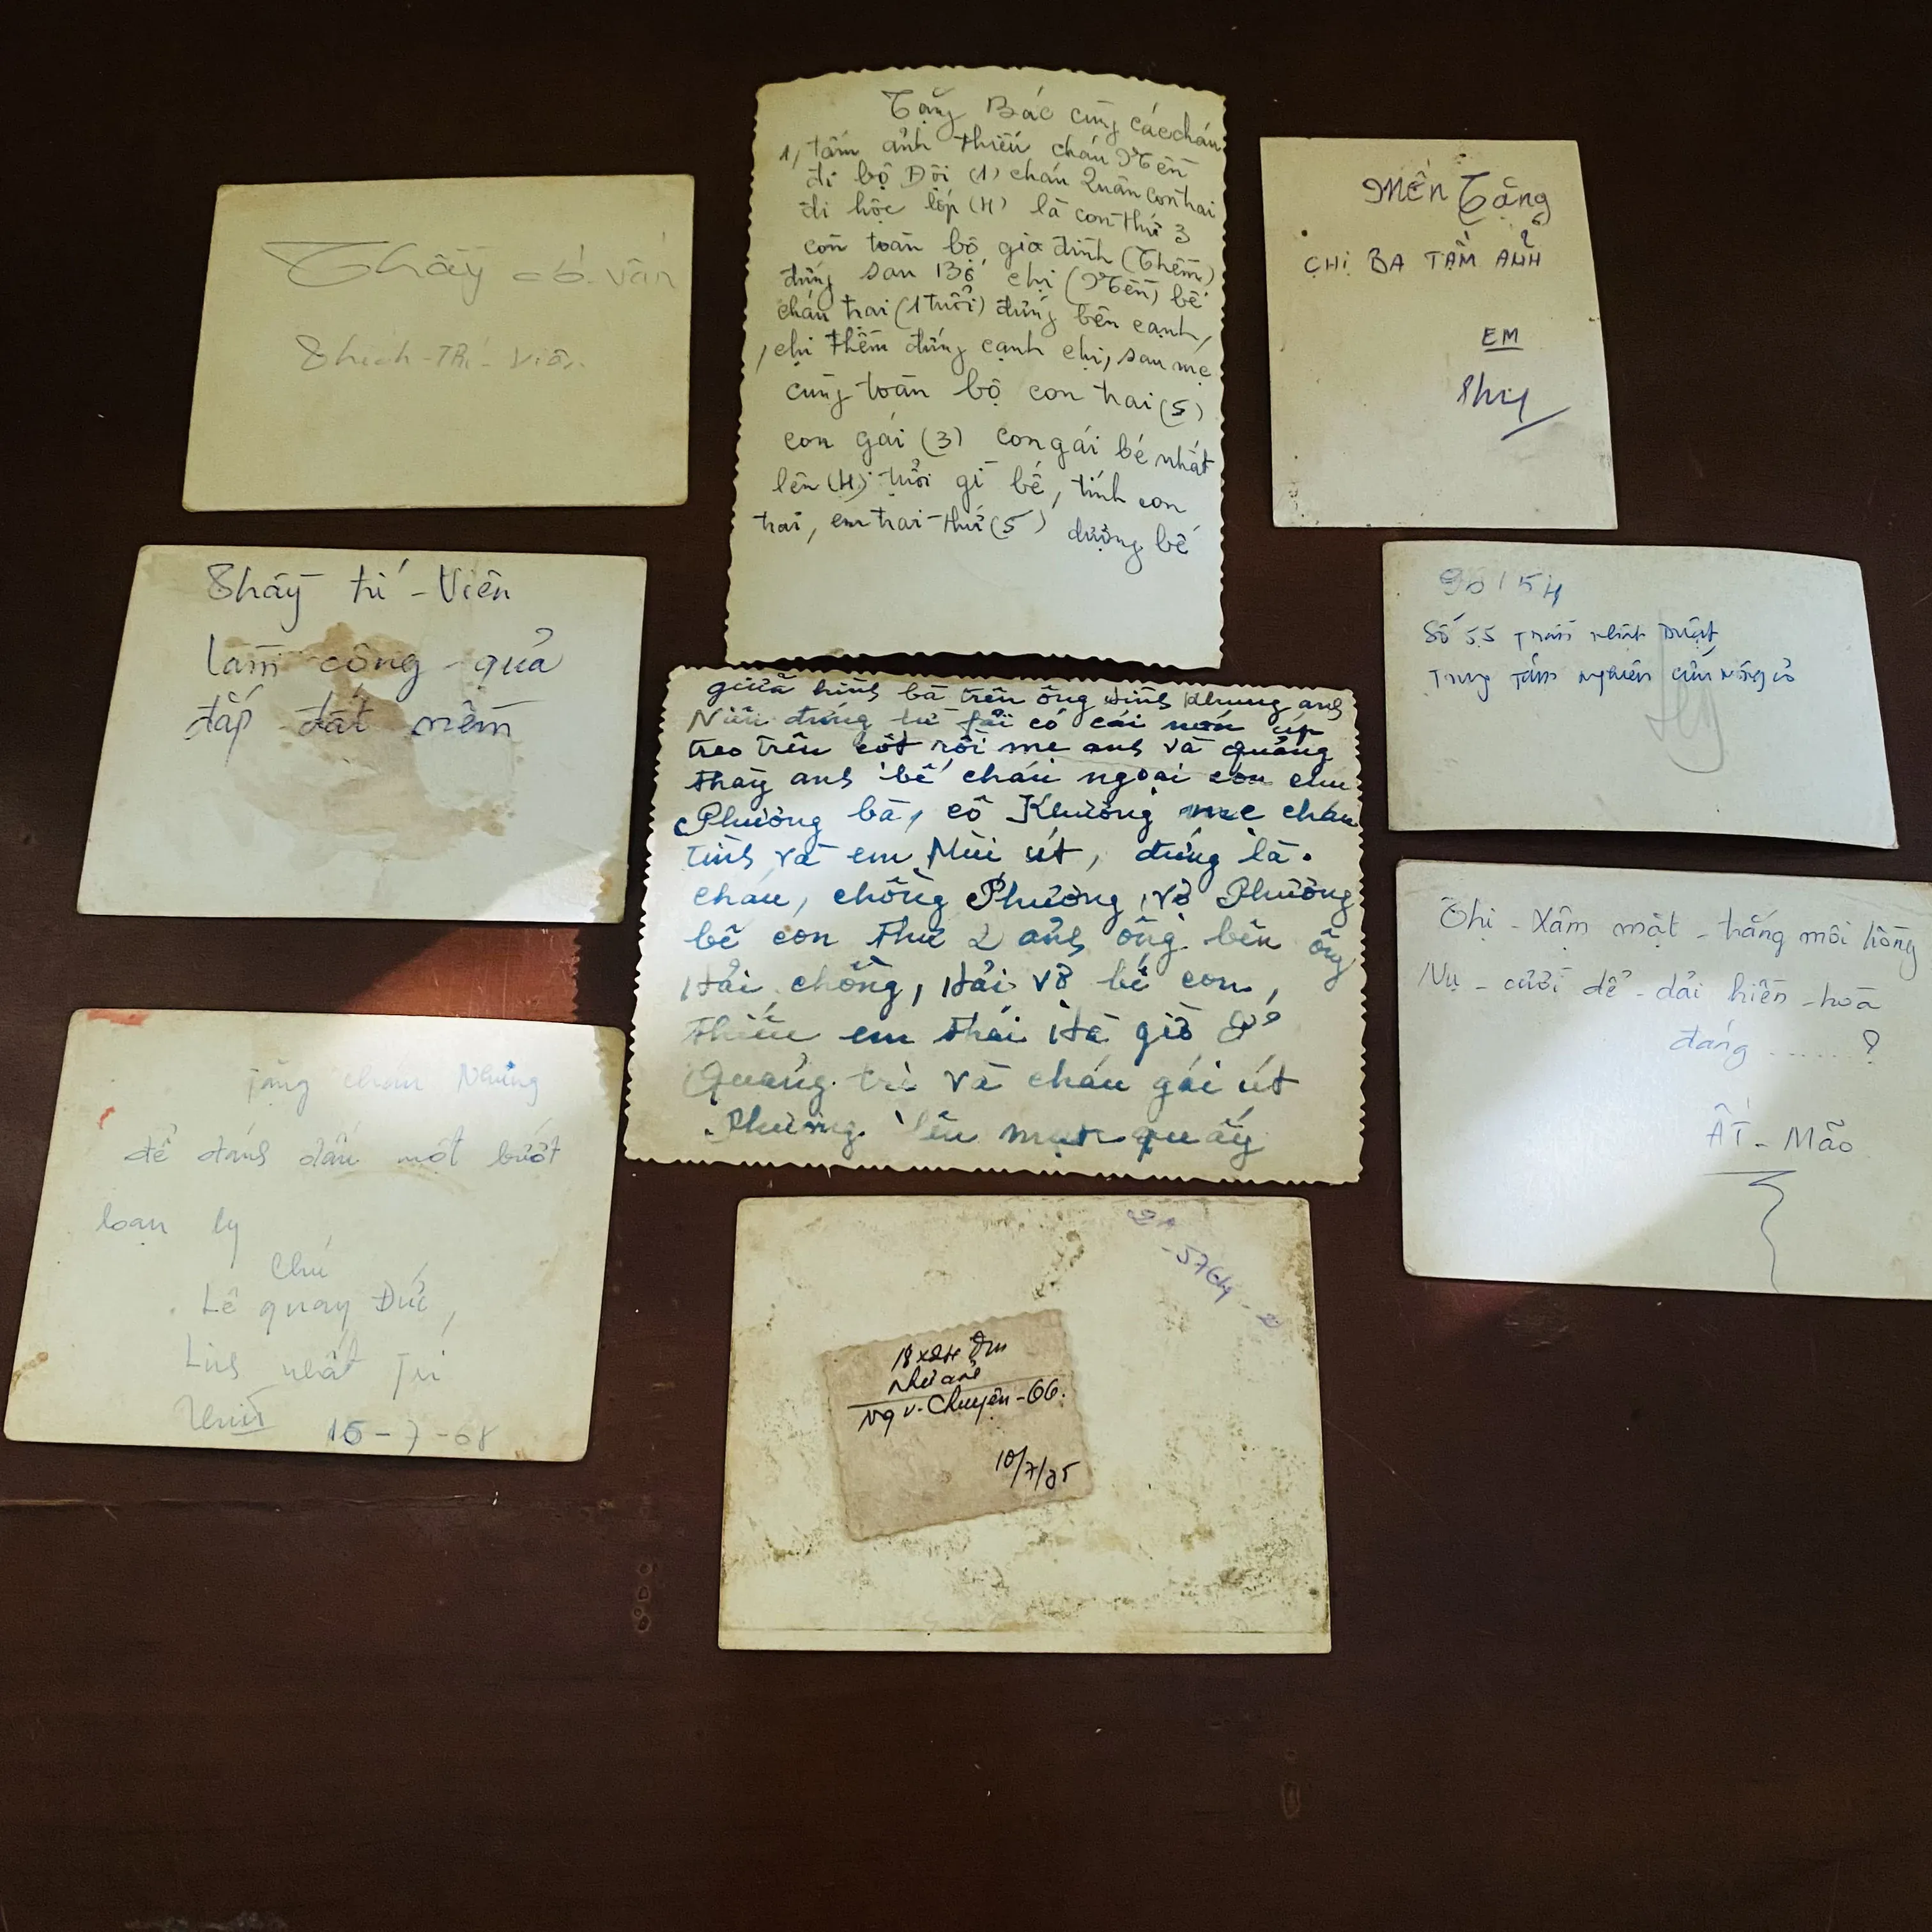 Thầy cố vấn
Thích-Trí-Viên
Tặng Bác cùng các cháu
1, tấm ảnh thiếu cháu
đi bộ Đội (1) cháu Quân con trai
đi học lớp (4) là con thứ 3
còn toàn bộ gia đình (Thêm)
đứng sau Bố chị (Mến) bế
cháu trai (1 tuổi) đứng bên cạnh,
, chị Thêm đứng cạnh chị, sau mẹ
cùng toàn bộ con trai (5)
con gái (3) con gái bé nhất
lên (4) tuổi gì bế, tính con
trai, em trai thứ (5) dượng bế
MẾN Tặng
CHỊ BA TẤM ẢNH
EM
Thy
Thầy trí-Viên
làm công-quả
đắp đất nềm
giữa hình bà trên ông hình khung anh
đứng từ fải có cái nón úp
treo trên cột rồi mẹ anh và quảng
thầy anh bế cháu ngoại con chú
Phường bà, cô Khương mẹ cháu
tình và em Mùi út, đứng là.
cháu, chồng Phường, vợ Phường
bế con thứ 2 ảnh ông bên ông
Hải chồng, Hải vợ bế con,
thiếu em thái Hà giờ ở
Quảng trị và cháu gái út
Phường lên mạn quấy
90154
Số 55 Trần Nhật Duật
Trung Tâm Nghiên Cứu Nông cơ
Thị-Xâm mặt-trắng môi hồng
Nụ-cười dể-dải hiền-hòa
đáng ......?
ẤT-Mão
Tặng cháu Nhung
để đánh dấu một buớt
loạn ly
Chú
Lê quay Đức,
15-7-68
-5764-2
18x24
Như ảnh
Ng v. Chuyện-66.
10/7/85